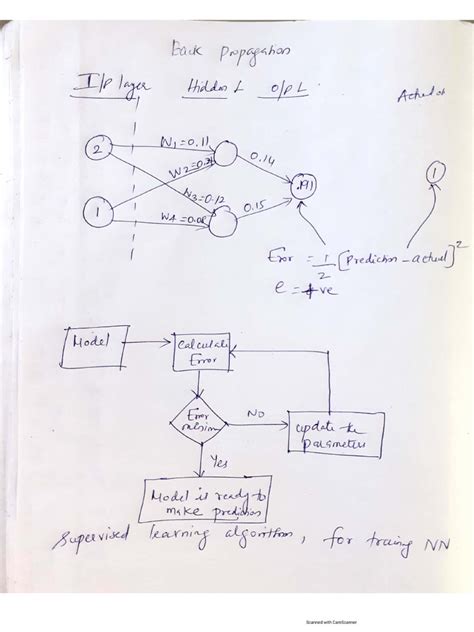 Back propagation
I/p layer Hidden L O/p L Actual o/p
W1=0.11
0.14
2
W2=0.21
.191
1
W3=0.12
0.15
1
W4=0.08
Error = 1/2 [prediction - actual]²
e = +ve
Model
calculate
Error
Error
minimum
NO
update the
parameters
Yes
Model is ready to
make prediction
Supervised learning algorithm, for training NN
Scanned with CamScanner